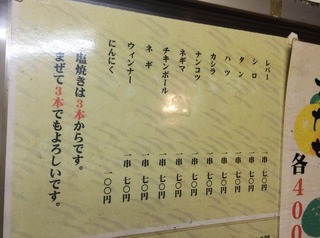 レバー 一串 七〇円
シロ 一串 七〇円
タン 一串 七〇円
ハツ 一串 七〇円
カシラ 一串 七〇円
ナンコツ 一串 七〇円
ネギマ 一串 七〇円
チキンボール 一串 七〇円
ネギ 一串 七〇円
ウィンナー 一串 七〇円
にんにく 一〇〇円
塩焼きは3本からです。
まぜて3本でもよろしいです。
各400